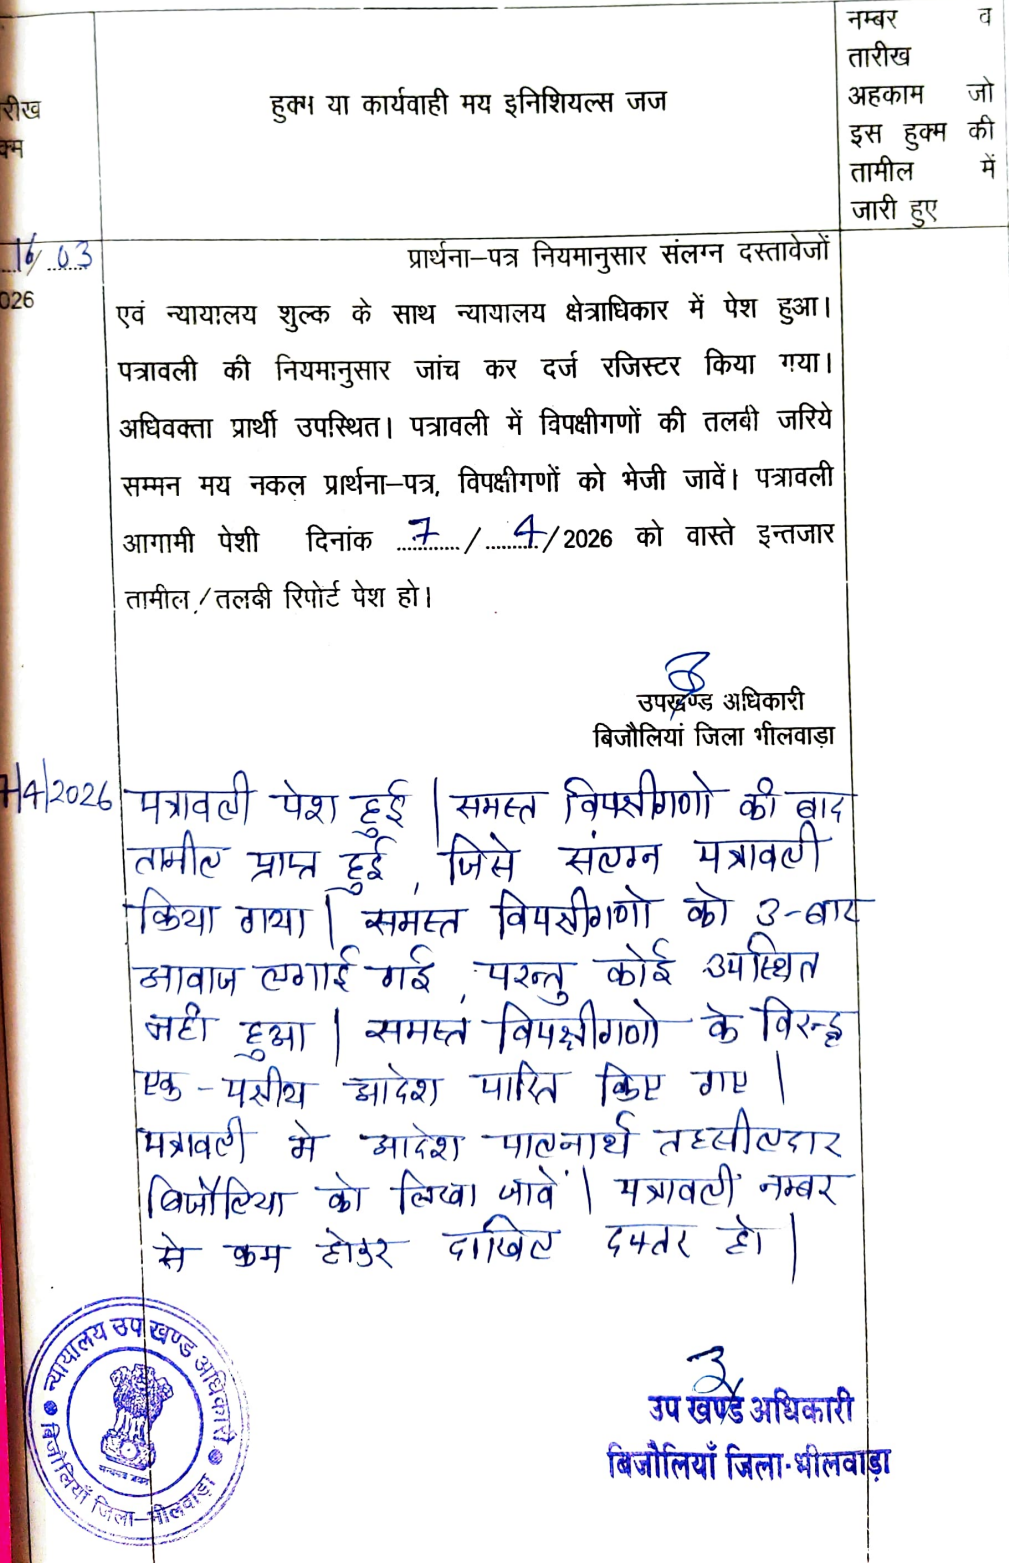 रीख
क्म
हुक्म या कार्यवाही मय इनिशियल्स जज
नम्बर व
तारीख
अहकाम जो
इस हुक्म की
तामील में
जारी हुए
16/03
026
प्रार्थना–पत्र नियमानुसार संलग्न दस्तावेजों
एवं न्यायालय शुल्क के साथ न्यायालय क्षेत्राधिकार में पेश हुआ।
पत्रावली की नियमानुसार जांच कर दर्ज रजिस्टर किया गया।
अधिवक्ता प्रार्थी उपस्थित। पत्रावली में विपक्षीगणों की तलबी जरिये
सम्मन मय नकल प्रार्थना–पत्र, विपक्षीगणों को भेजी जावें। पत्रावली
आगामी पेशी दिनांक 7/4/2026 को वास्ते इन्तजार
तामील/तलबी रिपोर्ट पेश हो।
उपखण्ड अधिकारी
बिजौलियां जिला भीलवाड़ा
7/4/2026 पत्रावली पेश हुई | समस्त विपक्षीगणो की बाद
तामील प्राप्त हुई, जिसे संलग्न पत्रावली
किया गया | समस्त विपक्षीगणो को 3-बार
आवाज लगाई गई, परन्तु कोई उपस्थित
नही हुआ | समस्त विपक्षीगणो के विरूद्ध
एक-पक्षीय आदेश पारित किए गए |
पत्रावली मे आदेश पालनार्थ तहसीलदार
बिजौलिया को लिखा जावें | पत्रावली नम्बर
से कम होकर दाखिल दफ्तर हो |
न्यायालय उप खण्ड अधिकारी
बिजौलियाँ जिला–भीलवाड़ा
उप खण्ड अधिकारी
बिजौलियाँ जिला-भीलवाड़ा